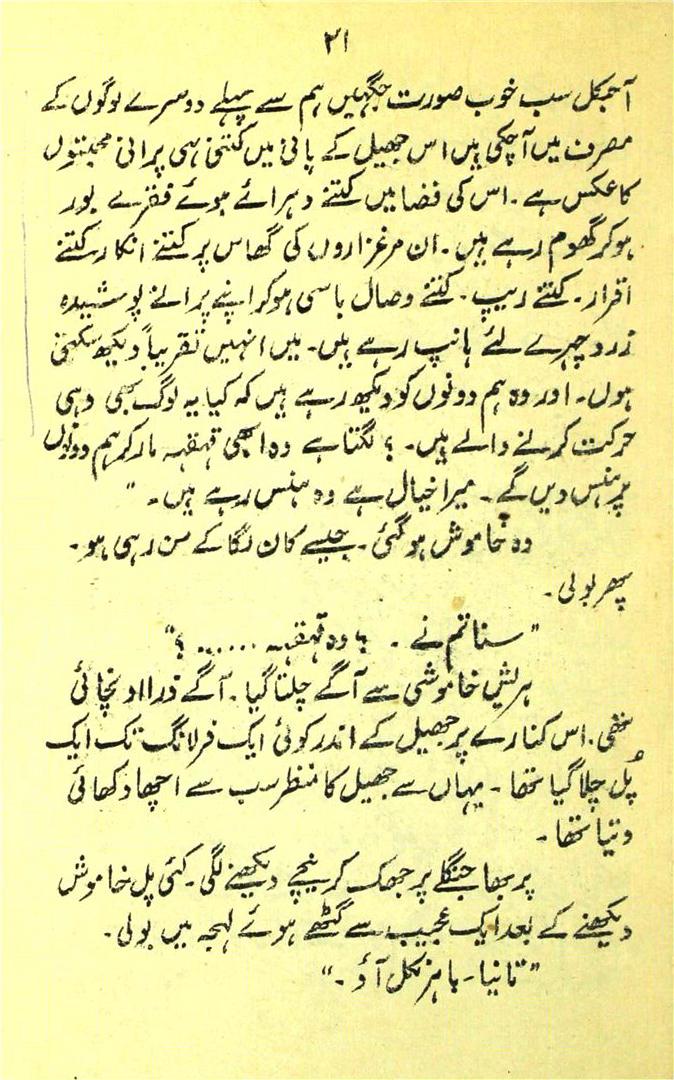 ۲۱
آجکل سب خوب صورت جگہیں ہم سے پہلے دوسرے لوگوں کے
مصرف میں آچکی ہیں اس جھیل کے پانی میں کتنی ہی پرانی محبتوں
کا عکس ہے۔ اس کی فضا میں کتنے دہرائے ہوئے فقرے بور
ہو کر گھوم رہے ہیں۔ ان مرغزاروں کی گھاس پر کتنے انکار کتنے
اقرار۔ کتنے ریپ۔ کتنے وصال باسی ہو کر اپنے پرانے پوشیدہ
زرد چہرے لئے ہانپ رہے ہیں۔ میں انہیں تقریباً دیکھ سکتی
ہوں۔ اور وہ ہم دونوں کو دیکھ رہے ہیں کہ کیا یہ لوگ بھی وہی
حرکت کرنے والے ہیں۔ ؟ لگتا ہے وہ ابھی قہقہہ مار کر ہم دونوں
پر ہنس دیں گے۔ میرا خیال ہے وہ ہنس رہے ہیں۔"
وہ خاموش ہو گئی۔ جیسے کان لگا کے سن رہی ہو۔
پھر بولی۔
"سنا تم نے۔ ؟ وہ قہقہہ ...... ؟"
ہریش خاموشی سے آگے چلتا گیا۔ آگے ذرا اونچائی
تھی۔ اس کنارے پر جھیل کے اندر کوئی ایک فرلانگ تک ایک
پُل چلا گیا تھا۔ یہاں سے جھیل کا منظر سب سے اچھا دکھائی
دیتا تھا۔
پربھا جنگلے پر جھک کر نیچے دیکھنے لگی۔ کئی پل خاموش
دیکھنے کے بعد ایک عجیب سے گھٹے ہوئے لہجہ میں بولی۔
"تانیا۔ باہر نکل آؤ۔"